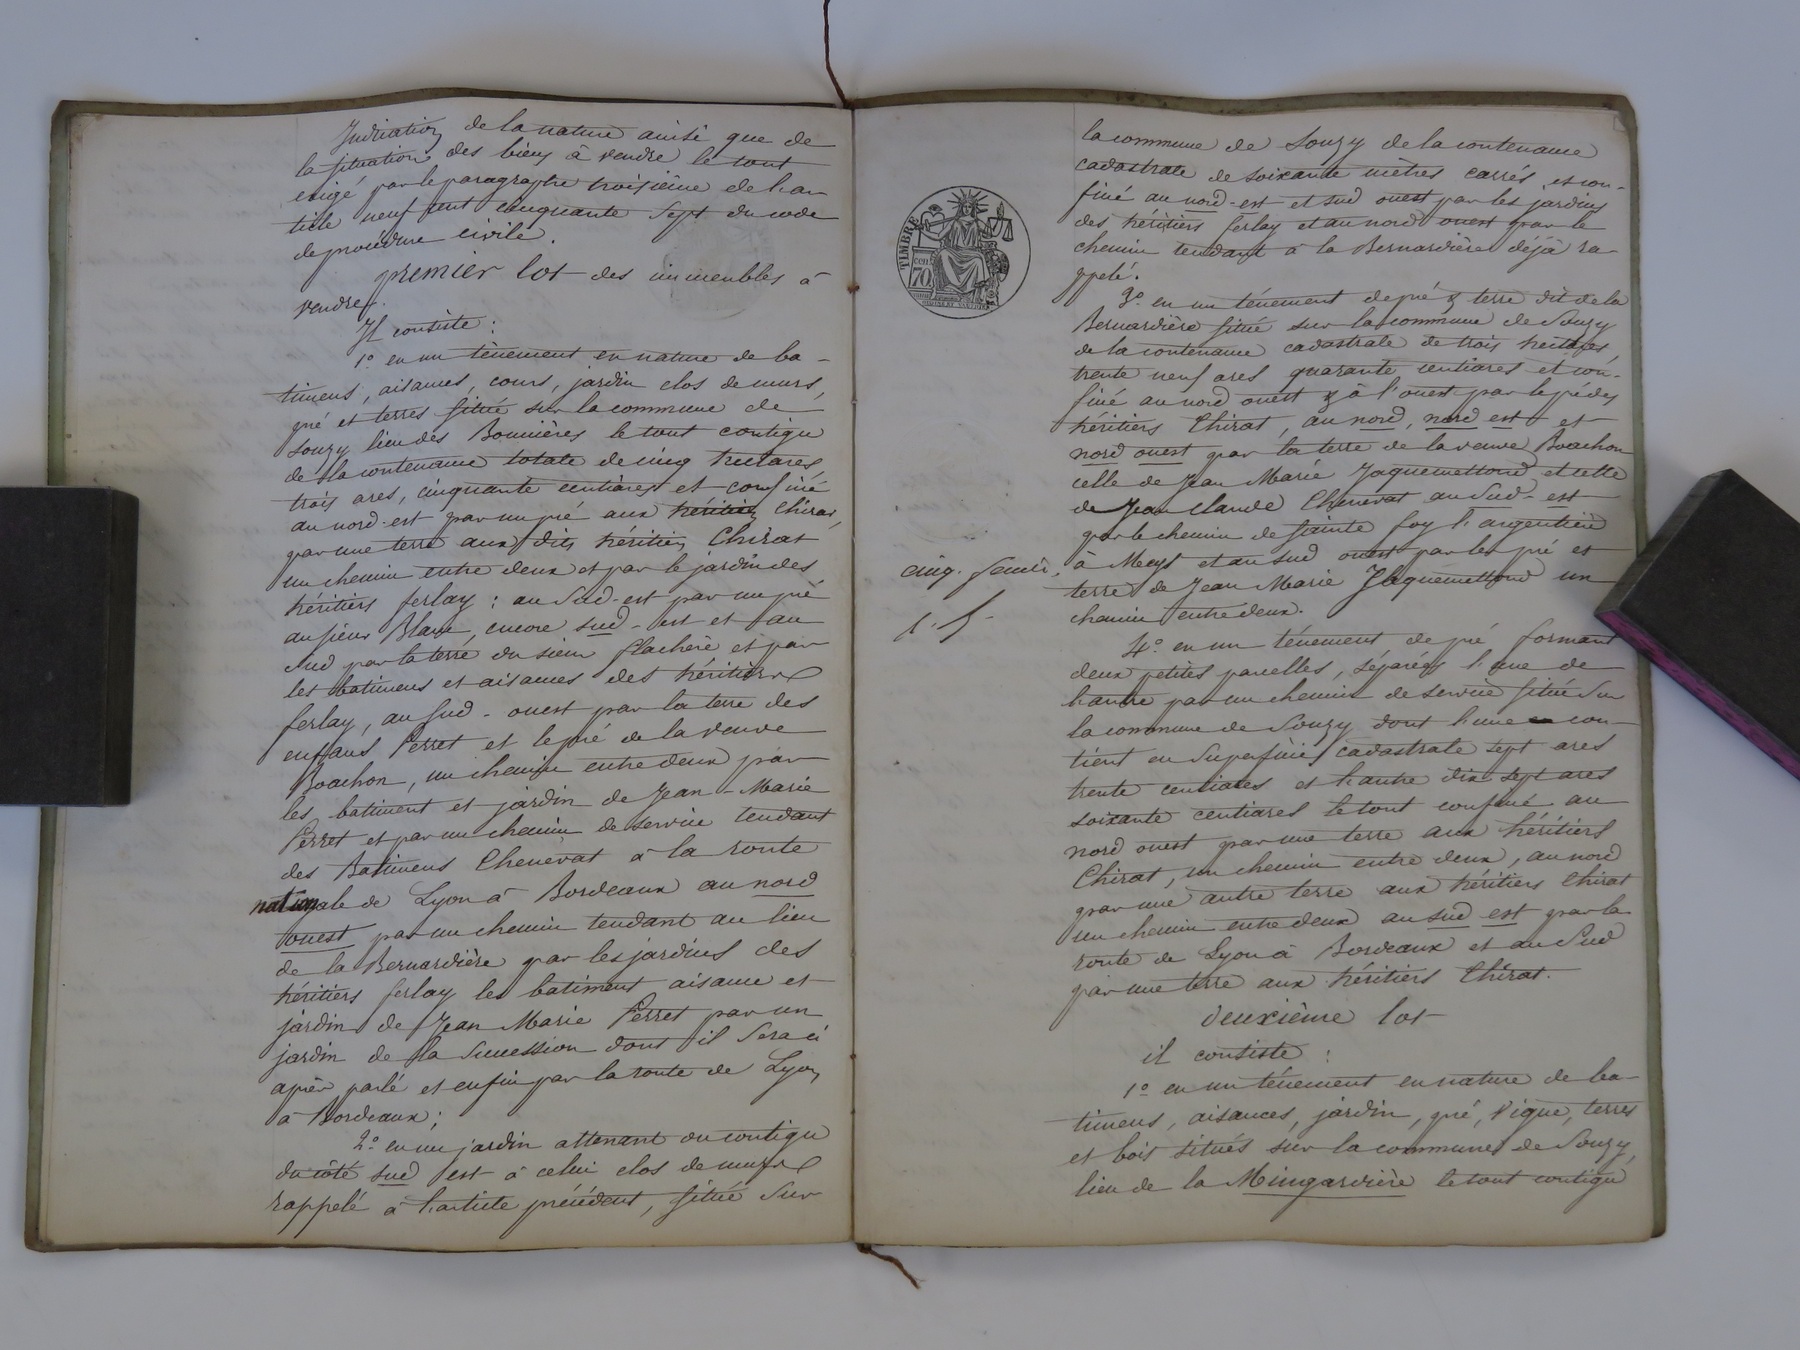 Indication de la nature ainsi que de
la situation des biens à vendre le tout
exigé par le paragraphe troisième de l'ar
ticle neuf cent cinquante sept du code
de procédure civile.
premier lot des immeubles à
vendre.
Il consiste :
1° en un tènement en nature de ba-
timens, aisances, cours, jardin clos de murs,
pré et terres situé sur la commune de
Souzy lieu des Bonnières le tout contigu
de la contenance totale de cinq hectares,
trois ares, cinquante centiares et confiné
au nord-est par un pré aux héritiers Chirat,
par une terre aux dits héritiers Chirat
un chemin entre deux et par le jardin des
héritiers ferlay : au Sud-est par un pré
au sieur Blanc, encore sud-est et au
sud par la terre du sieur flachère et par
les batimens et aisances des héritiers
ferlay, au sud-ouest par la terre des
enfans Perret et le pré de la veuve
Boachon, un chemin entre deux par
les batiment et jardin de Jean-Marie
Perret et par un chemin de service tendant
des Batimens Chenevat à la route
nationale de Lyon à Bordeaux au nord
ouest par un chemin tendant au lieu
de la Bernardière par les jardins des
héritiers ferlay les batiment aisance et
jardin de Jean Marie Perret par un
jardin de la Succession dont il sera ci
après parlé et enfin par la route de Lyon
à Bordeaux ;
2° en un jardin attenant ou contigu
du côté sud est à celui clos de murs
rappelé à l'article précédent, situé sur
TIMBRE
70
la commune de Souzy de la contenance
cadastrale de soixante mètres carrés, et con-
finé au nord-est et sud ouest par les jardins
des héritiers ferlay et au nord ouest par le
chemin tendant à la Bernardière déjà ra
ppelé.
3° en un ténement de pré & terre dit de la
Bernardière situé sur la commune de Souzy
de la contenance cadastrale de trois hectares,
trente neuf ares quarante centiares et con-
finé au nord ouest & à l'ouest par le pré des
héritiers Chirat, au nord, nord est et
nord ouest par la terre de la veuve Boachon
celle de Jean Marie Jaquemettond et celle
de Jean Claude Chenevat au Sud-est
par le chemin de sainte foy l'argentière
cinq.
à Meys et au sud ouest par les pré et
terre de Jean Marie Jaquemettond un
chemin entre deux.
4° en un ténement de pré formant
deux petites parcelles, séparées l'une de
l'autre par un chemin de service situé sur
la commune de Souzy dont l'une con-
tient en Superficie cadastrale sept ares
trente centiares et l'autre dix sept ares
soixante centiares le tout confiné au
nord ouest par une terre aux héritiers
Chirat, un chemin entre deux, au nord
par une autre terre aux héritiers Chirat
un chemin entre deux au sud est par la
route de Lyon à Bordeaux et au Sud
par une terre aux héritiers Chirat.
deuxième lot
il consiste :
1° en un ténement en nature de ba-
timens, aisances, jardin, pré, vigne, terres
et bois situés sur la commune de Souzy,
lieu de la Mingardière le tout contigu